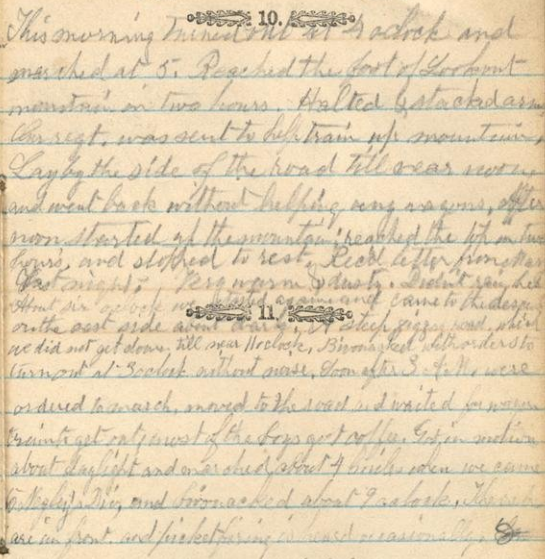 10.
This morning turned out at 3 oclock and
marched at 5. Reached the foot of Lookout
mountain in two hours. Halted & stacked arms
Our regt. was sent to help train up mountain,
Lay by the side of the road till near noon,
and went back without helping any wagons, After
noon started up the mountain; reached the top in two
hours, and stopped to rest. Recd letter from
last night. Very warm & dusty. Didn't rain
About six oclock we started again and came to the
11.
on the east side about dark steep road, which
we did not get down till near 11 oclock, Bivouacked with orders to
turn out at 3 oclock without noise. Soon after 3 A.M. were
ordered to march, moved to the road and waited for wagon
train to get out, most of the boys got coffee. Got in motion
about daylight and marched about 4 miles when we came
to Negley's Div. and bivouacked about 9 oclock. The
are in front and picket firing is heard occasionally.